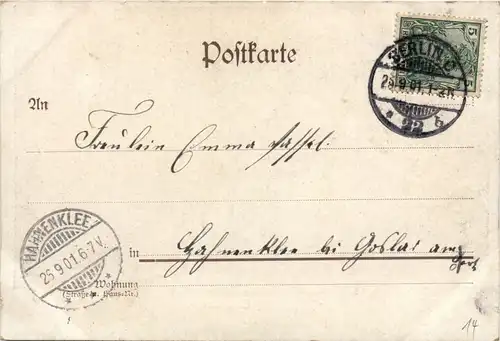 5
Postkarte
BERLIN C
25.9.01.1-2N.
* 22 b
An
Fräulein Emma Hassel.
HAHNENKLEE
25.9.01.6-7V.
* *
in Hahnenklee bei Goslar am
Harz
Wohnung
(Straße u. Haus-Nr.)
14